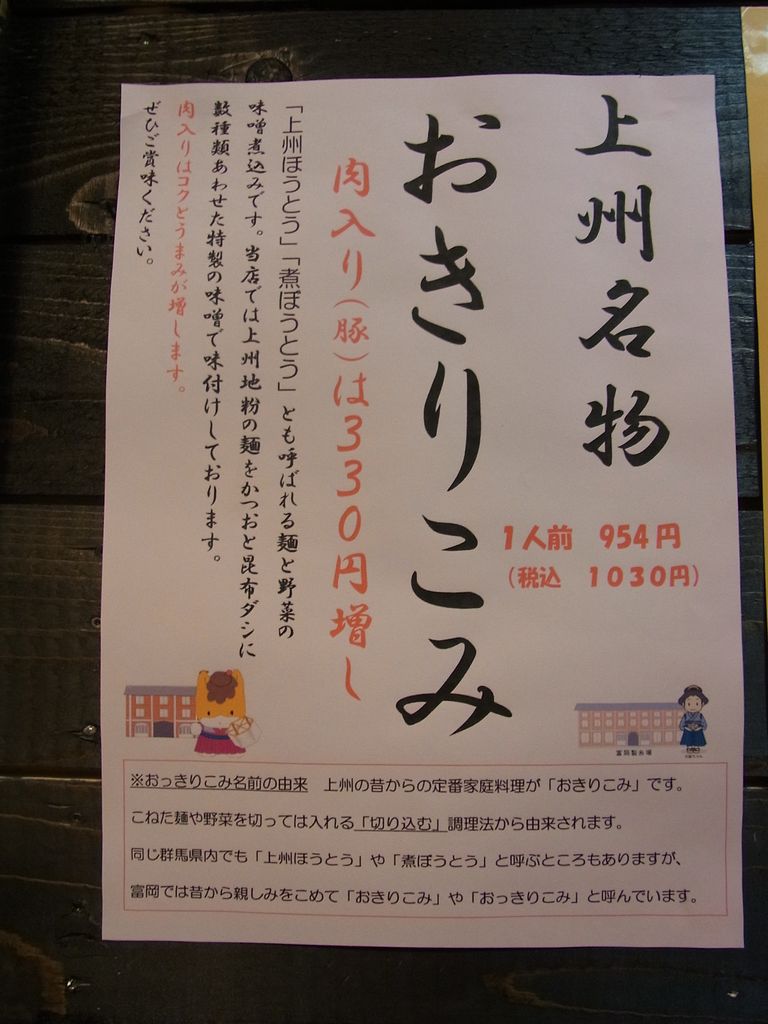 上州名物
おきりこみ
1人前 954円
(税込 1030円)
肉入り(豚)は330円増し
「上州ほうとう」「煮ぼうとう」とも呼ばれる麺と野菜の
味噌煮込みです。当店では上州地粉の麺をかつおと昆布ダシに
数種類あわせた特製の味噌で味付けしております。
肉入りはコクとうまみが増します。
ぜひご賞味ください。
富岡製糸場
※おっきりこみ名前の由来 上州の昔からの定番家庭料理が「おきりこみ」です。
こねた麺や野菜を切っては入れる「切り込む」調理法から由来されます。
同じ群馬県内でも「上州ほうとう」や「煮ぼうとう」と呼ぶところもありますが、
富岡では昔から親しみをこめて「おきりこみ」や「おっきりこみ」と呼んでいます。